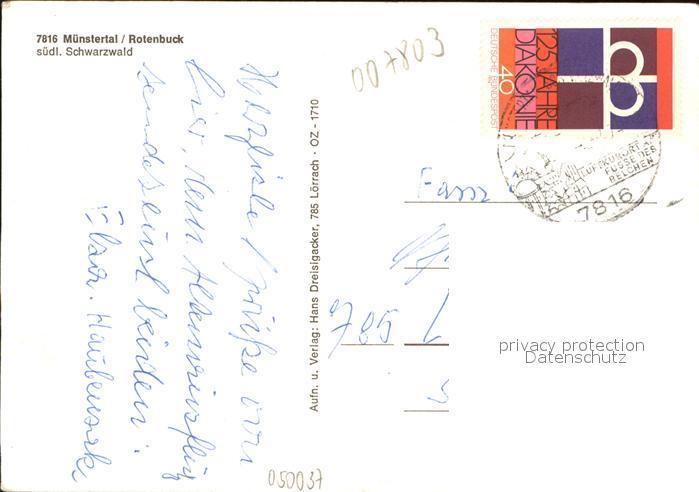 7816 Münstertal / Rotenbuck
südl. Schwarzwald
007803
125 JAHRE
DIAKONIE
40
DEUTSCHE BUNDESPOST
LUFTKURORT AM
FUSSE DES
BELCHEN
7816
Herzliche Grüße von
hier, Herrn
sendet Euch beiden.
Fam.
785
Aufn. u. Verlag: Hans Dreisigacker, 785 Lörrach · OZ - 1710
privacy protection
Datenschutz
050037